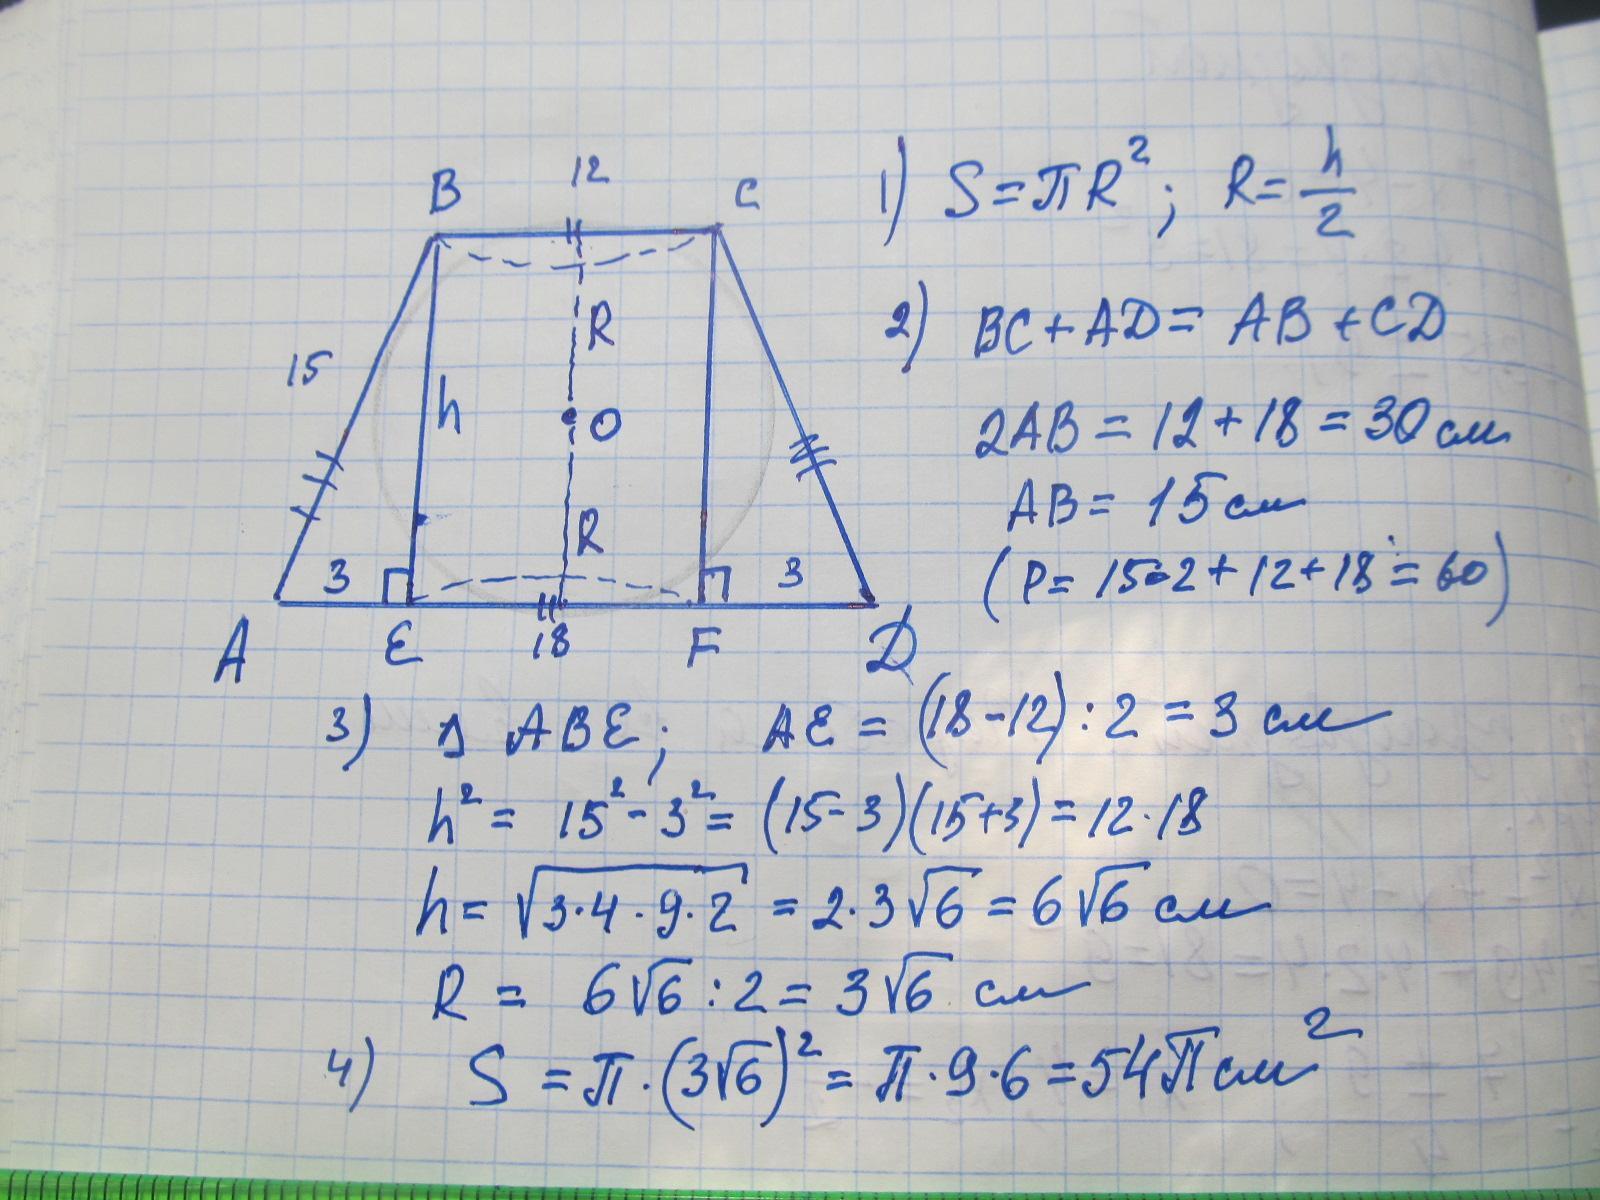 B 12 C
15 h R O R
3 3
A E 18 F D
1) S = πR²; R = h/2
2) BC + AD = AB + CD
2AB = 12 + 18 = 30 см
AB = 15 см
(P = 15·2 + 12 + 18 = 60)
3) Δ ABE; AE = (18 - 12) : 2 = 3 см
h² = 15² - 3² = (15 - 3)(15 + 3) = 12 · 18
h = √(3·4·9·2) = 2·3√6 = 6√6 см
R = 6√6 : 2 = 3√6 см
4) S = π · (3√6)² = π · 9 · 6 = 54π см²